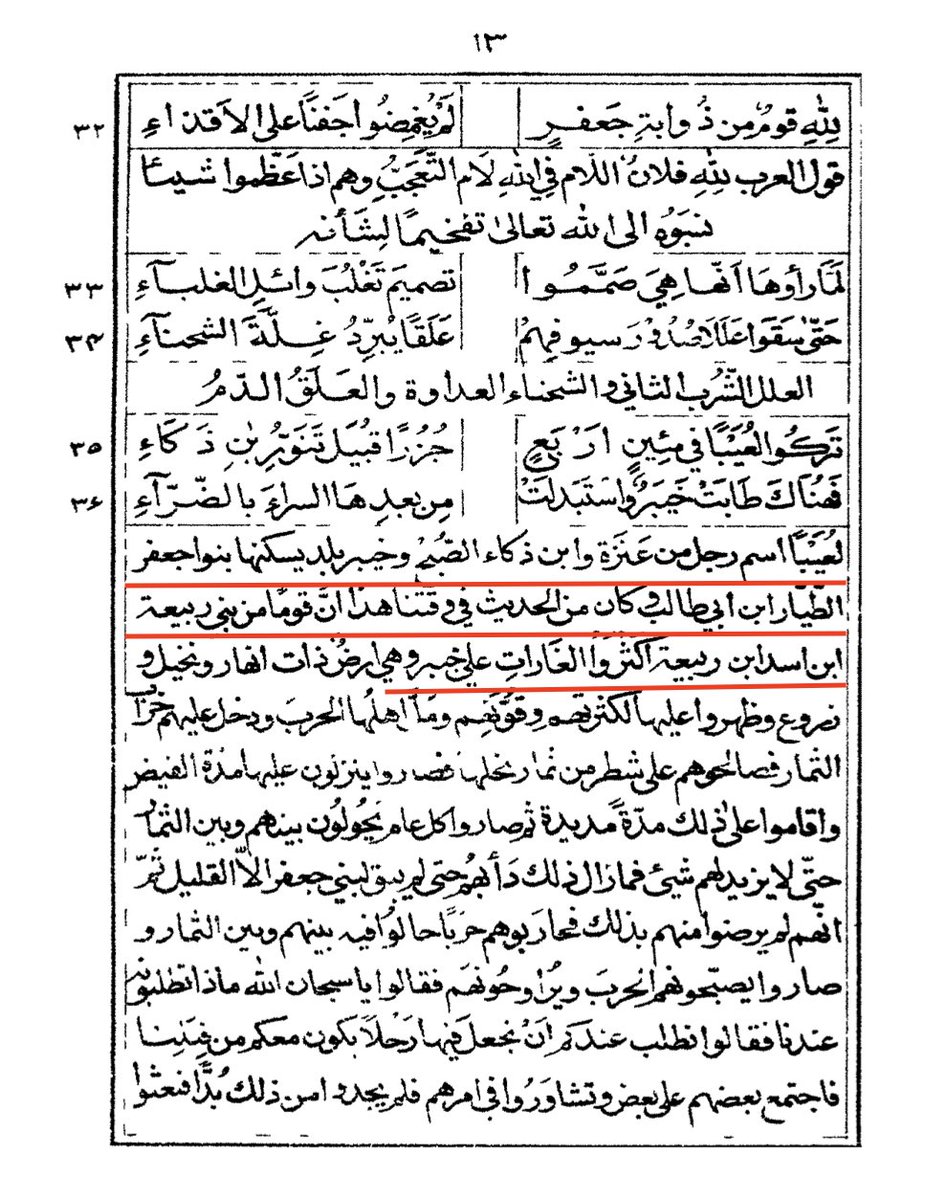 ١٣
لِلّٰهِ قومٌ من ذُوابةِ جَعفرٍ لَمْ يُغمِضُوا جَفنًا على الاَقذاءِ ٣٢
قول العرب لِلّٰهِ فلانٌ اللّام في لِلّٰه لَام التَّعَجّبِ وهم اذا عَظّموا شيئًا
نسَبوُه الى الله تعالىٰ تفخيمًا لِشَأنه
لَمَّا رأوهَا اَنّها هِيَ صَمَّمُوا تصميمَ تَغْلُبَ وائلِ الغلبآءِ ٣٣
حَتّىٰ سَقَوا عَلَلا صُدُوْرَ سيوفهمْ عَلَقًا يُبرِّدُ غِلَّةَ الشحنآءِ ٣٤
العلل الشّرُب الثاني و الشحناء العداوة والعَلَقُ الدّمُ
تَركُوا لُعَيْبًا في مئِينٍ اَرْبَعٍ جُزُرًا قبُيَلَ تَنَوّرُ بنِ ذَكَاءِ ٣٥
فَهُناكَ طَابَتْ خَيبَرٌ واسْتَبدلَتْ مِن بعدِهَا السراءَ بالضّرّآءِ ٣٦
لعُيَبًا اسم رجل من عَنَزة وابن ذكاء الصّبُحْ وخيبر بلد يسكنها بنوا جعفر
الطّيار ابن ابي طالب وكان من الحديث في وقتنا هذا انّ قومًا من بني ربيعة
ابن اسد ابن ربيعة اكثرُوا الغَاراتِ على خيبر وهي ارضُ ذات انهار ونخيل و
زروع وظهروا عليها لكثرتهم وقوّتهم وملّ اهلها الحربَ ودخل عليهم خَرابُ
الثمار فصالحوهم على شطر من ثمار نخلها فصاروا ينزلون عليها مدّة القيض
واقاموا على ذلك مدّةً مديدة ثم صاروا كل عام يحولُون بينهم وبين الثمار
حتّى لا يزيد لهم شئ فما زال ذلك دَأبهُم حتى لم يبق لبني جعفر الاّ القليل ثمّ
انهم لم يرضوا منهم بذلك فحاربوهم حَربًا حالوُا فيه بينهم وبين الثمار و
صاروا يصبّحونهم الحربَ ويُراوحُونهَم فقالوا يا سبحان الله ماذا تطلبونه
عندنا فقالوا نطلب عندكم انْ نجعل فيها رَجُلاً يكون معكم من فيئنا
فاجتمع بعضهم على بعض وتشاوَرُوا في امرهم فلم يجدوا من ذلك بُدًّا فبعثوا